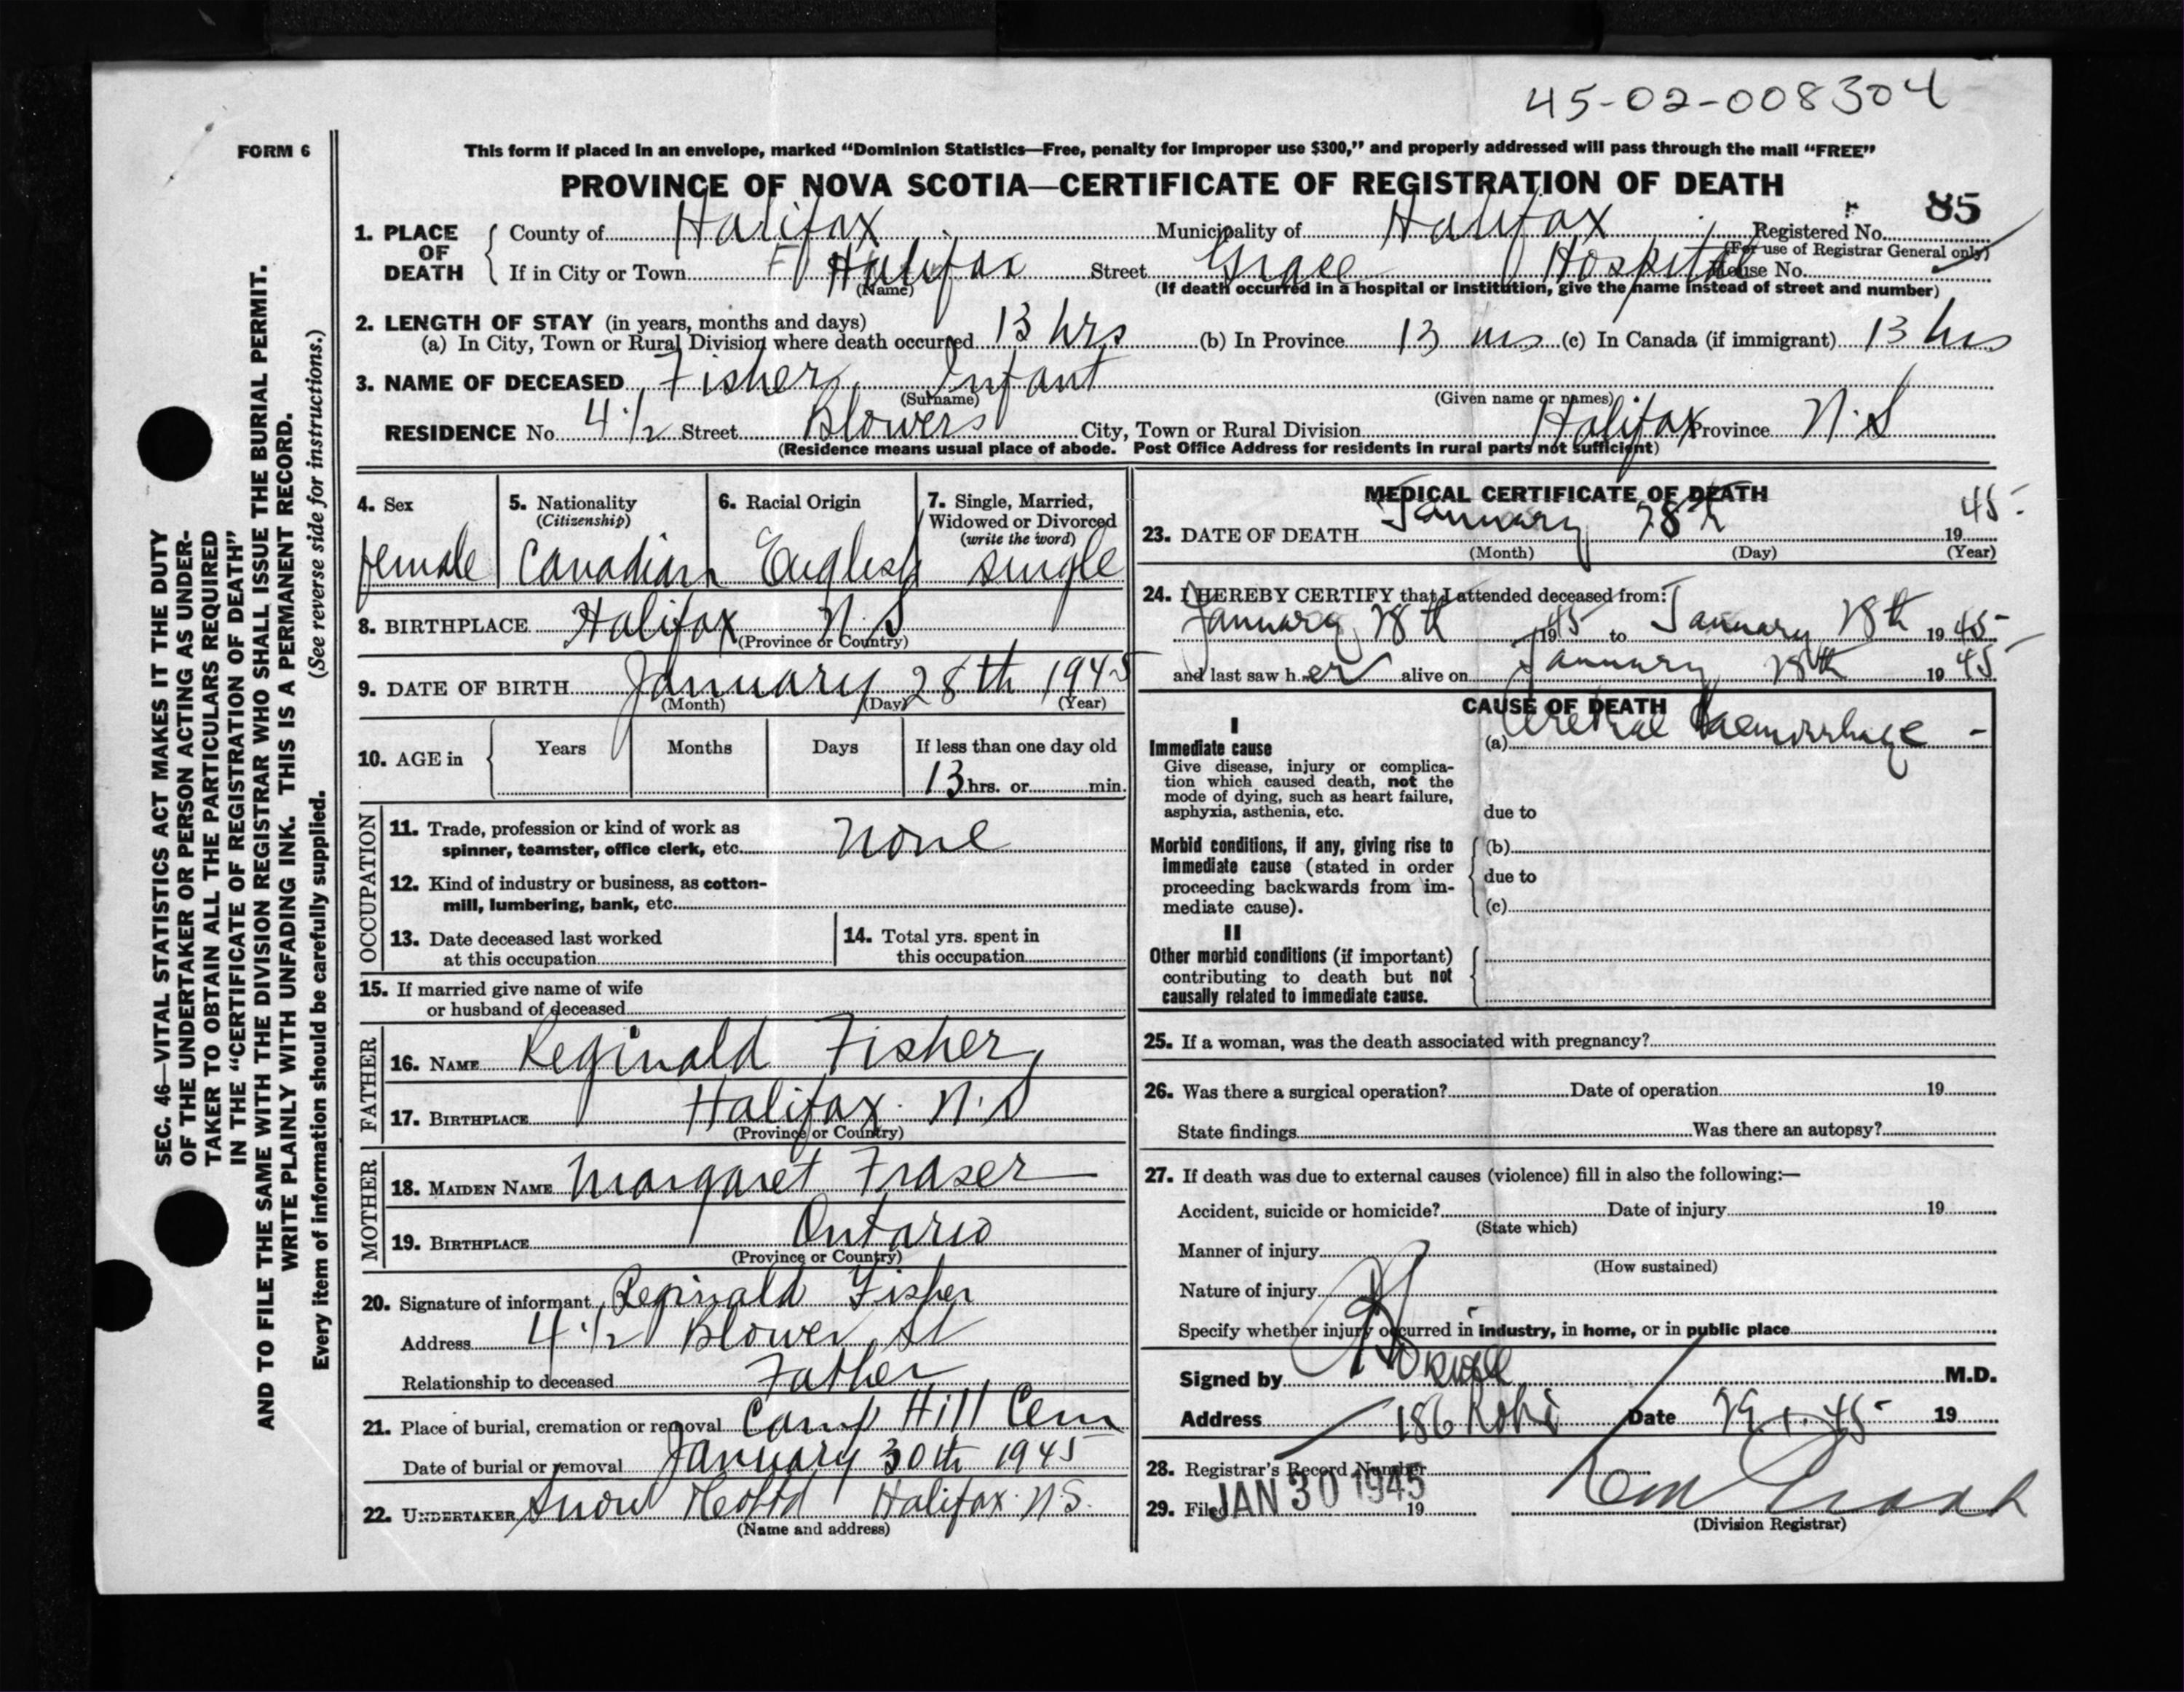 45-02-008304
FORM 6
This form if placed in an envelope, marked “Dominion Statistics—Free, penalty for improper use $300,” and properly addressed will pass through the mail “FREE”
PROVINCE OF NOVA SCOTIA—CERTIFICATE OF REGISTRATION OF DEATH
85
1. PLACE OF DEATH County of Halifax Municipality of Halifax Registered No.
(For use of Registrar General only)
If in City or Town Halifax Street Grace Hospital House No.
(Name) (If death occurred in a hospital or institution, give the name instead of street and number)
2. LENGTH OF STAY (in years, months and days)
(a) In City, Town or Rural Division where death occurred 13 hrs (b) In Province 13 hrs (c) In Canada (if immigrant) 13 hrs
3. NAME OF DECEASED Fisher, Infant
(Surname) (Given name or names)
RESIDENCE No. 4 1/2 Street Blowers City, Town or Rural Division Halifax Province N.S
(Residence means usual place of abode. Post Office Address for residents in rural parts not sufficient)
4. Sex
female
5. Nationality
(Citizenship)
Canadian
6. Racial Origin
English
7. Single, Married,
Widowed or Divorced
(write the word)
single
8. BIRTHPLACE Halifax N.S
(Province or Country)
9. DATE OF BIRTH January 28th 1945
(Month) (Day) (Year)
10. AGE in Years Months Days If less than one day old
13 hrs. or min.
OCCUPATION
11. Trade, profession or kind of work as
spinner, teamster, office clerk, etc. None
12. Kind of industry or business, as cotton-
mill, lumbering, bank, etc.
13. Date deceased last worked
at this occupation
14. Total yrs. spent in
this occupation
15. If married give name of wife
or husband of deceased
FATHER
16. NAME Reginald Fisher
17. BIRTHPLACE Halifax N.S
(Province or Country)
MOTHER
18. MAIDEN NAME Margaret Fraser
19. BIRTHPLACE Ontario
(Province or Country)
20. Signature of informant Reginald Fisher
Address 4 1/2 Blower St
Relationship to deceased Father
21. Place of burial, cremation or removal Camp Hill Cem
Date of burial or removal January 30th 1945
22. UNDERTAKER Snow Halifax N.S.
(Name and address)
MEDICAL CERTIFICATE OF DEATH
23. DATE OF DEATH January 28th 1945
(Month) (Day) (Year)
24. I HEREBY CERTIFY that I attended deceased from:
January 28th 1945 to January 28th 1945
and last saw her alive on January 28th 1945
CAUSE OF DEATH
I
Immediate cause
Give disease, injury or complica-
tion which caused death, not the
mode of dying, such as heart failure,
asphyxia, asthenia, etc.
(a) Cerebral Haemorrhage
due to
Morbid conditions, if any, giving rise to
immediate cause (stated in order
proceeding backwards from im-
mediate cause).
(b)
due to
(c)
II
Other morbid conditions (if important)
contributing to death but not
causally related to immediate cause.
25. If a woman, was the death associated with pregnancy?
26. Was there a surgical operation? Date of operation 19
State findings Was there an autopsy?
27. If death was due to external causes (violence) fill in also the following:—
Accident, suicide or homicide? Date of injury 19
(State which)
Manner of injury
(How sustained)
Nature of injury
Specify whether injury occurred in industry, in home, or in public place
Signed by M.D.
Address 186 Robie Date 29.1.45 19
28. Registrar's Record Number
29. Filed JAN 30 1945 19
(Division Registrar)
SEC. 46—VITAL STATISTICS ACT MAKES IT THE DUTY
OF THE UNDERTAKER OR PERSON ACTING AS UNDER-
TAKER TO OBTAIN ALL THE PARTICULARS REQUIRED
IN THE “CERTIFICATE OF REGISTRATION OF DEATH”
AND TO FILE THE SAME WITH THE DIVISION REGISTRAR WHO SHALL ISSUE THE BURIAL PERMIT.
WRITE PLAINLY WITH UNFADING INK. THIS IS A PERMANENT RECORD.
Every item of information should be carefully supplied. (See reverse side for instructions.)